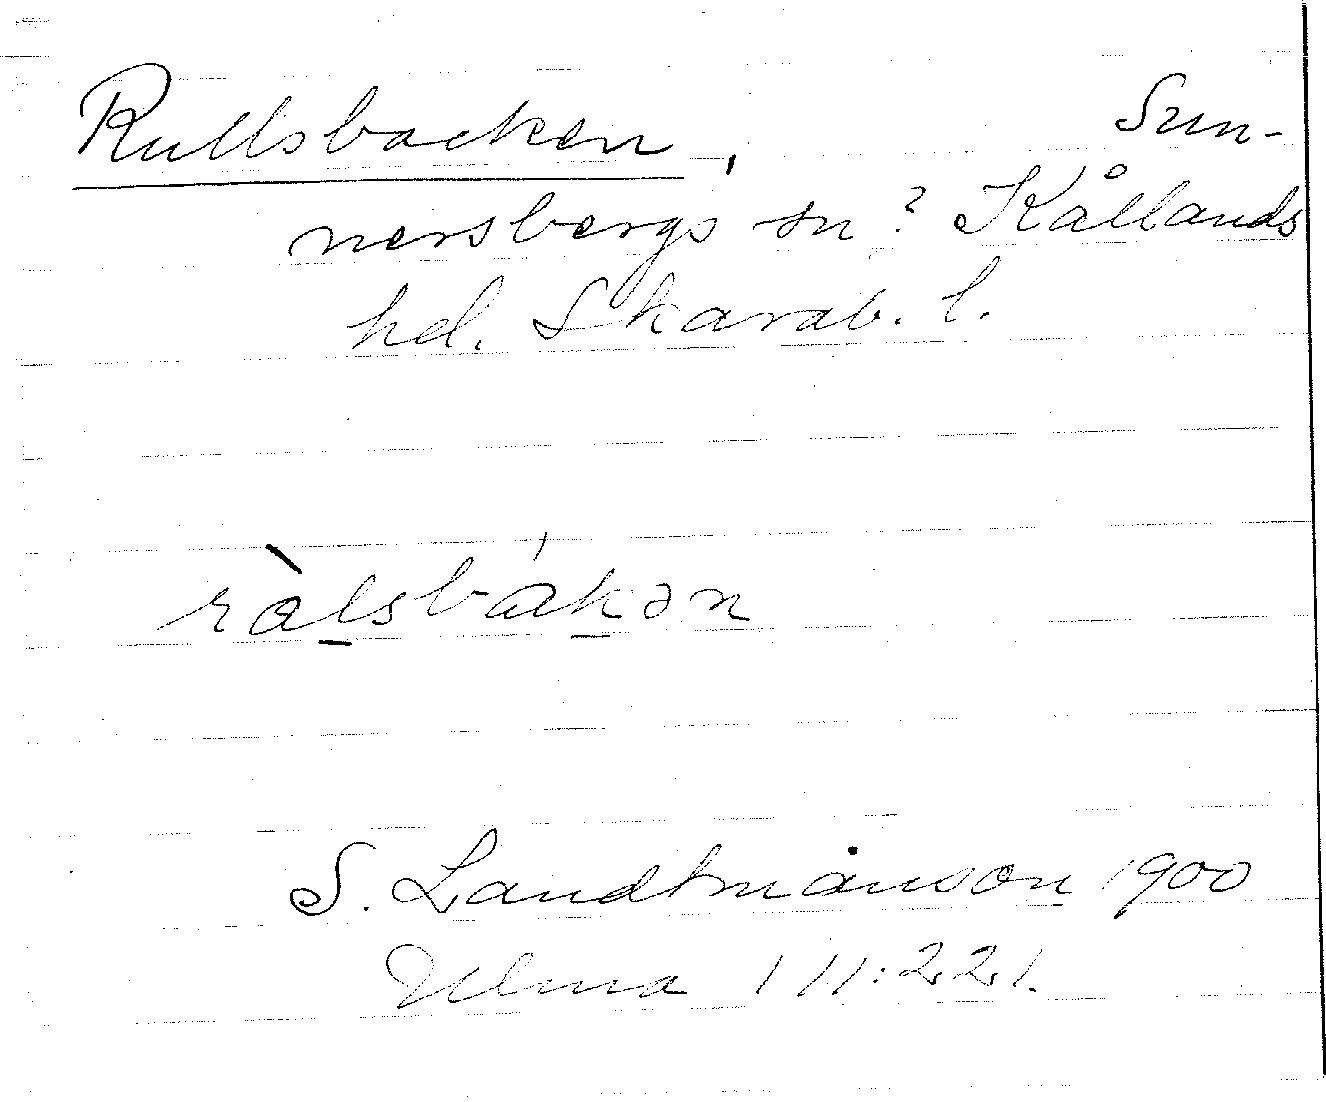 Rullsbacken, Sun-
nersbergs sn? Kållands
hd. Skarab. l.
ràlsbákən
S. Landtmånson 1900
Ulma 111:221.